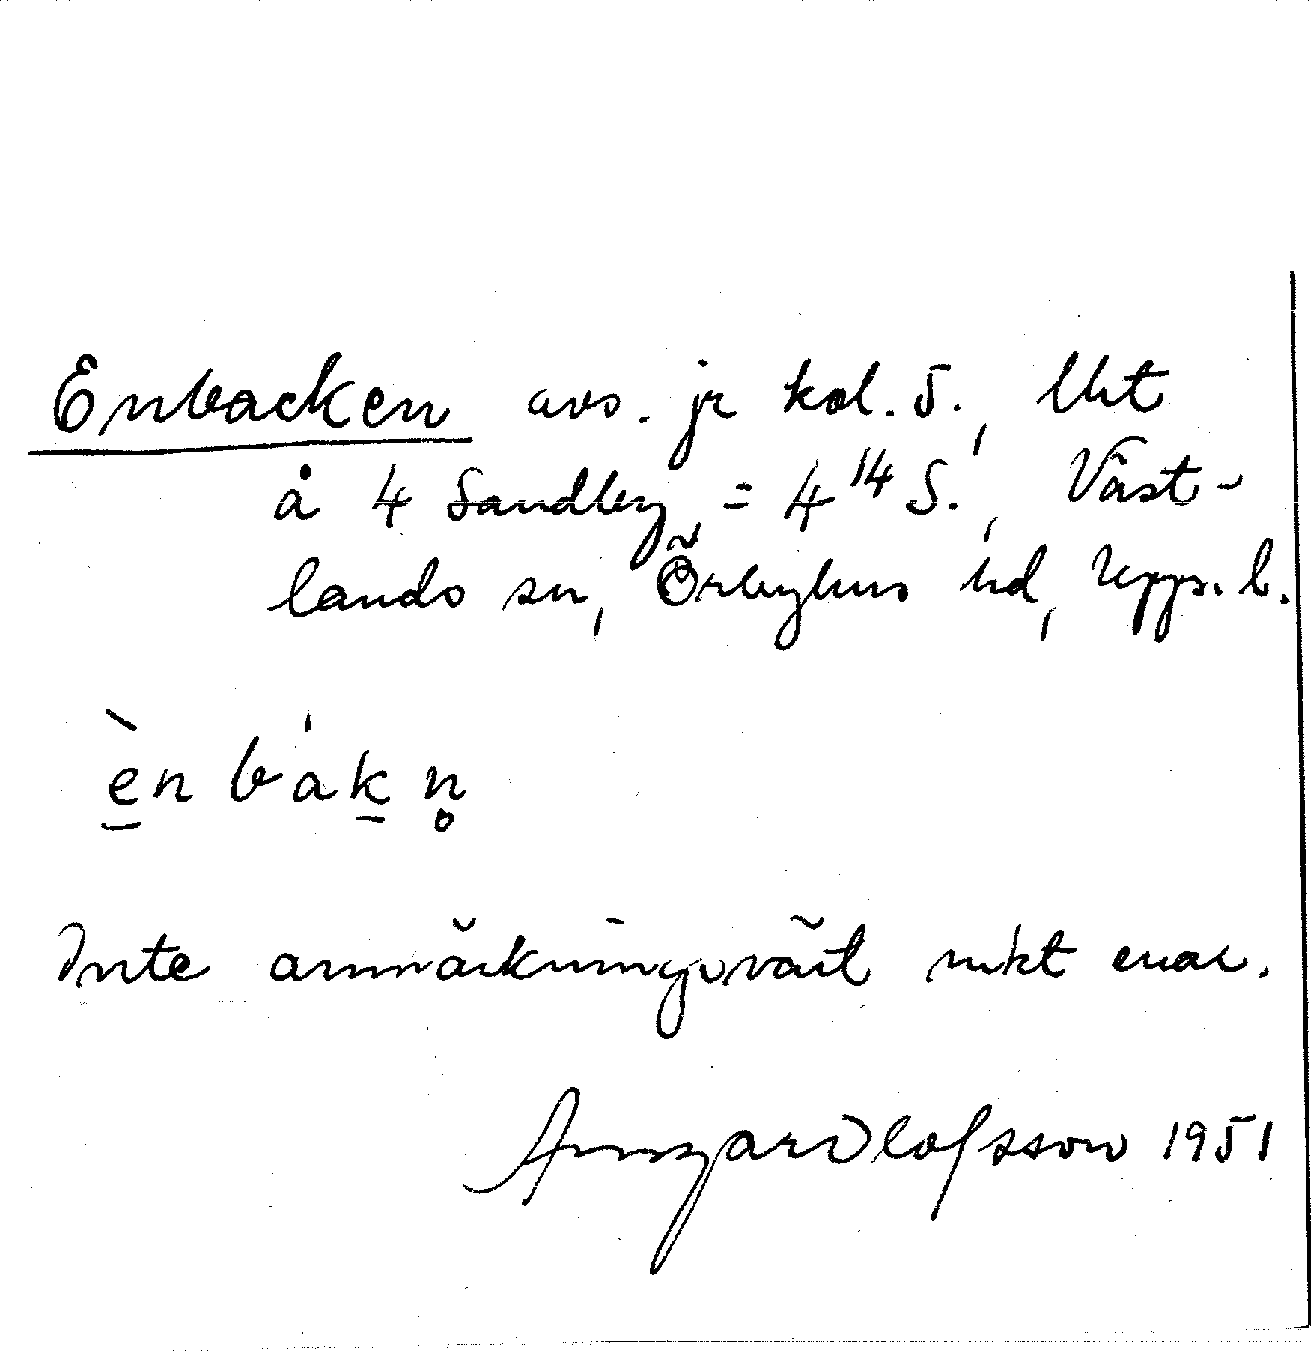 Enbacken avs. jr kol. 5., Utt
å 4 Sandby = 4¹⁴ S., Väst-
lands sn, Örbyhus hd, Upps. l.
è̱nbáḵn̥
Inte anmärkningsvärt rikt enar.
Ansgar Olofsson 1951